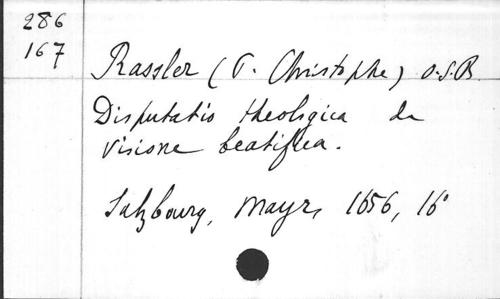 286
167
Rassler (P. Christophe) O.S.B.
Disputatio theologica de
visione beatifica.
Salzbourg, Mayr, 1656, 16°